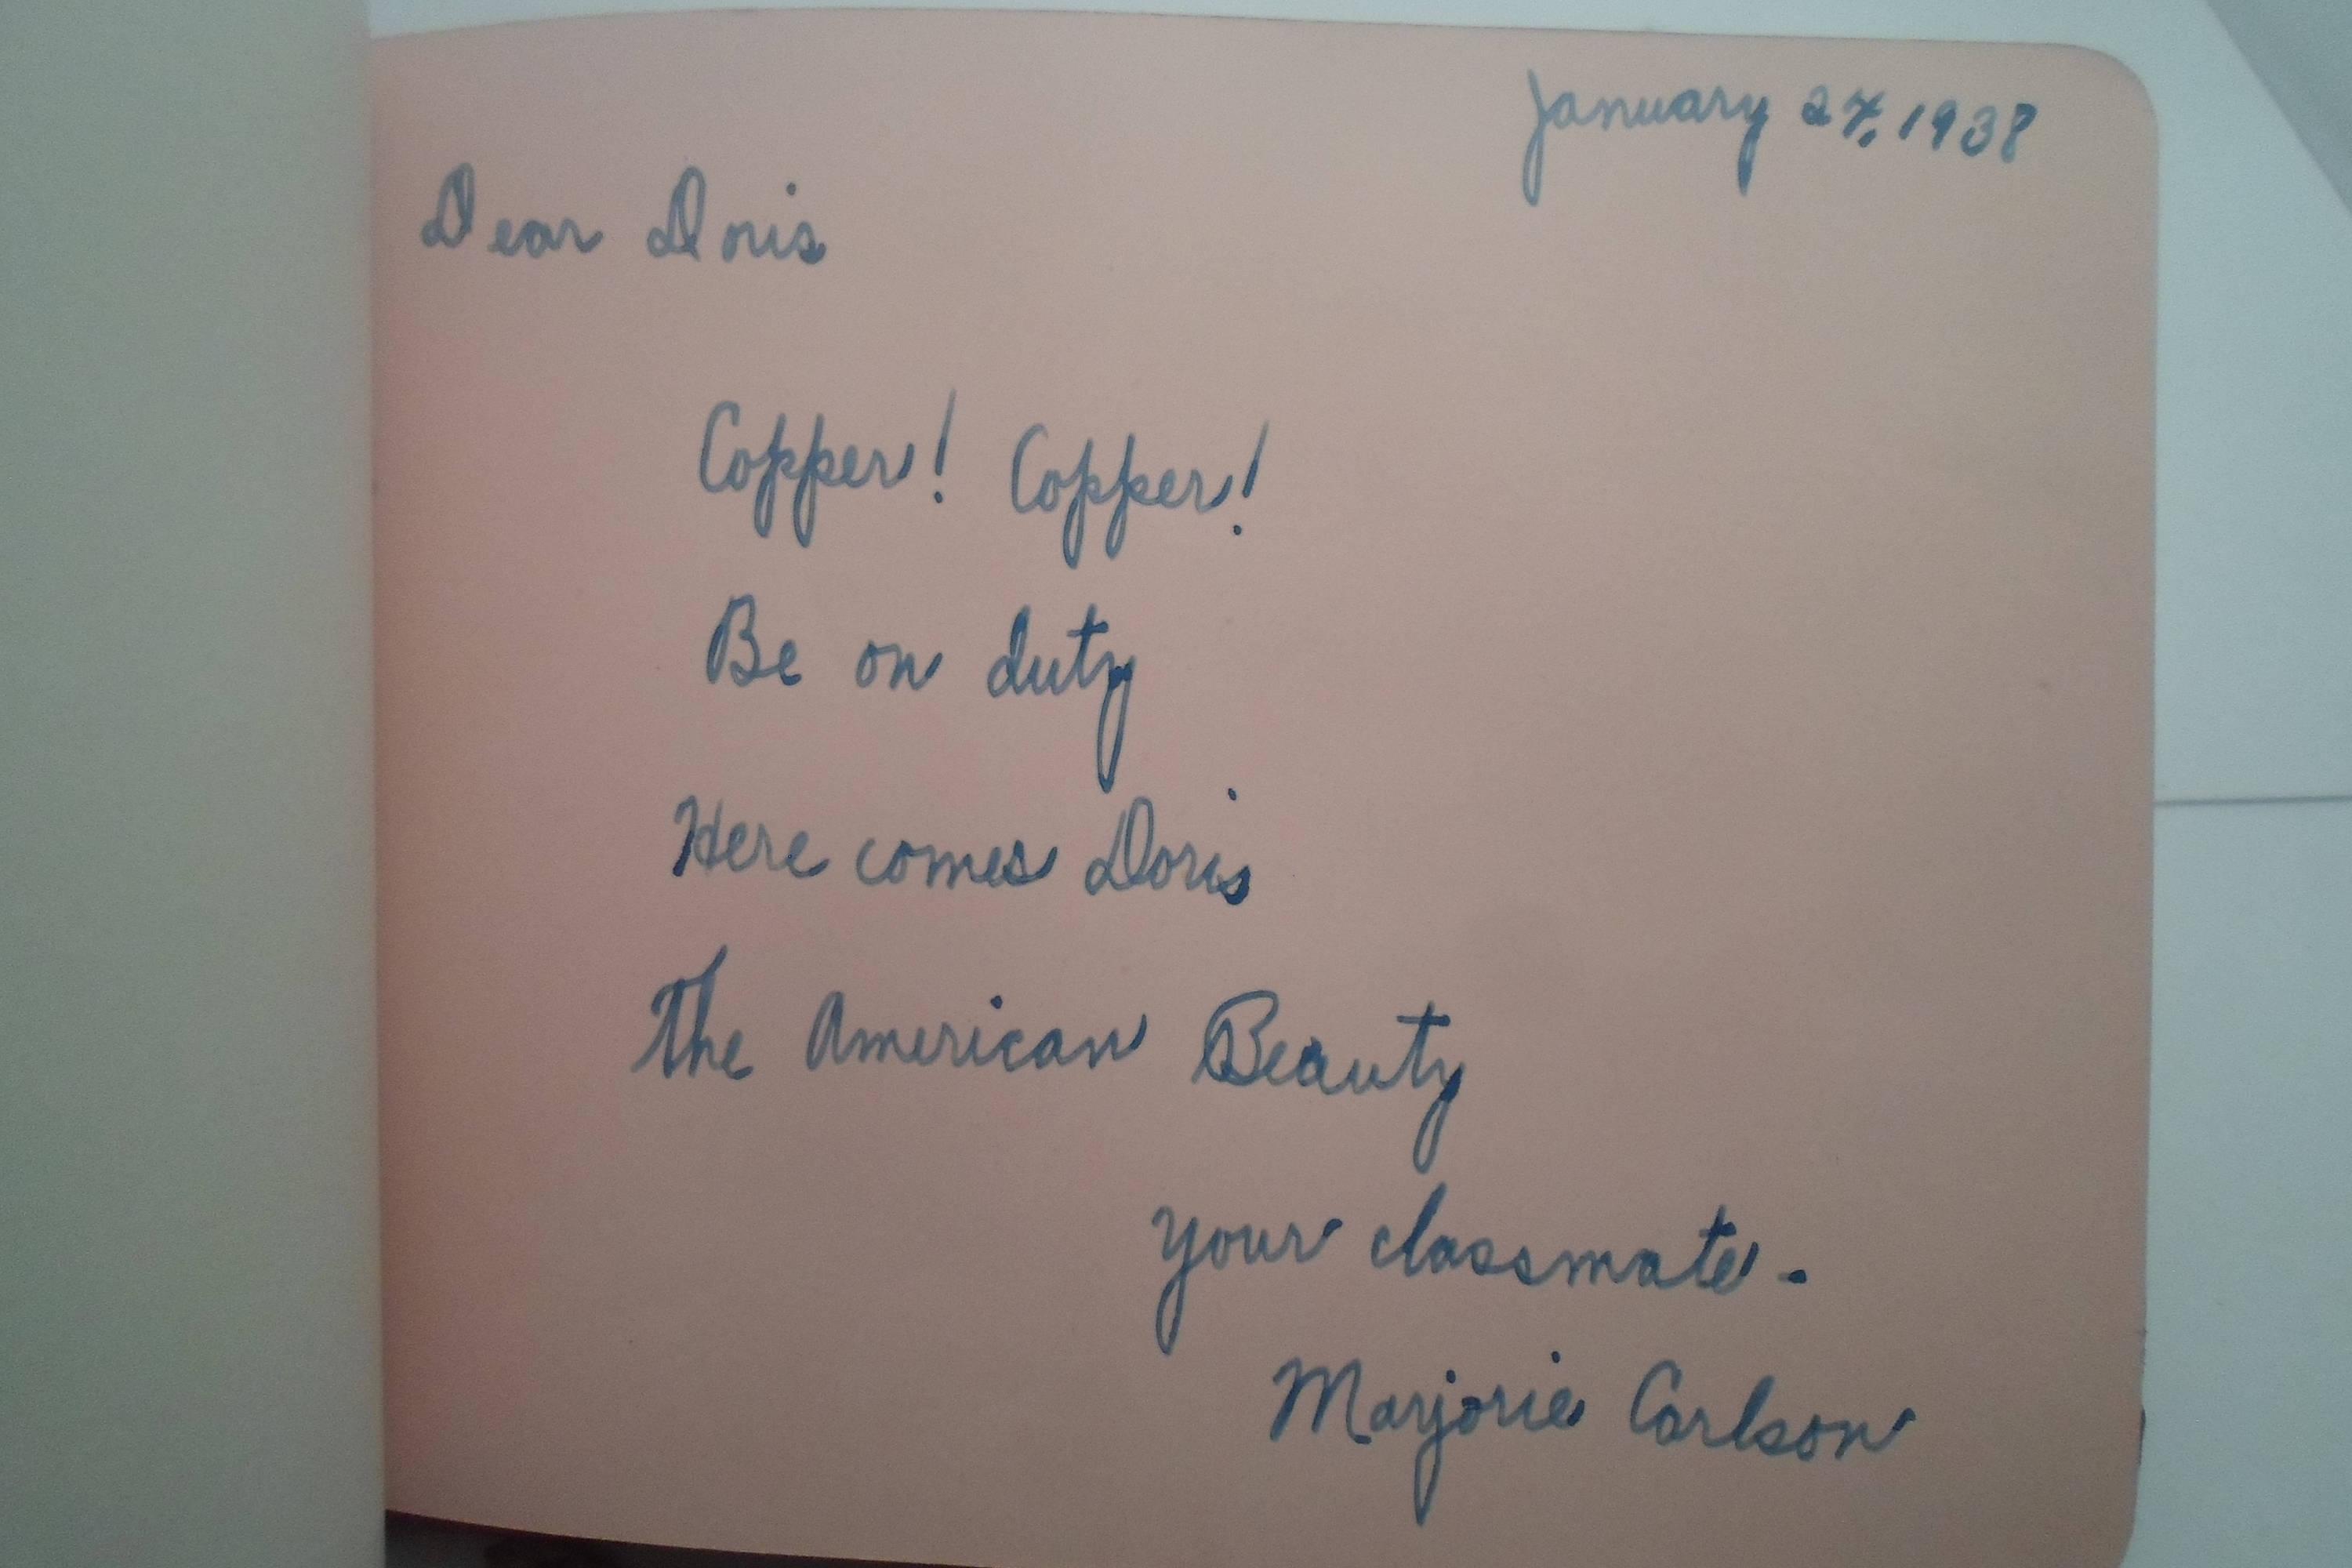 January 27, 1938
Dear Doris
Copper! Copper!
Be on duty
Here comes Doris
The American Beauty
your classmate.
Marjorie Carlson